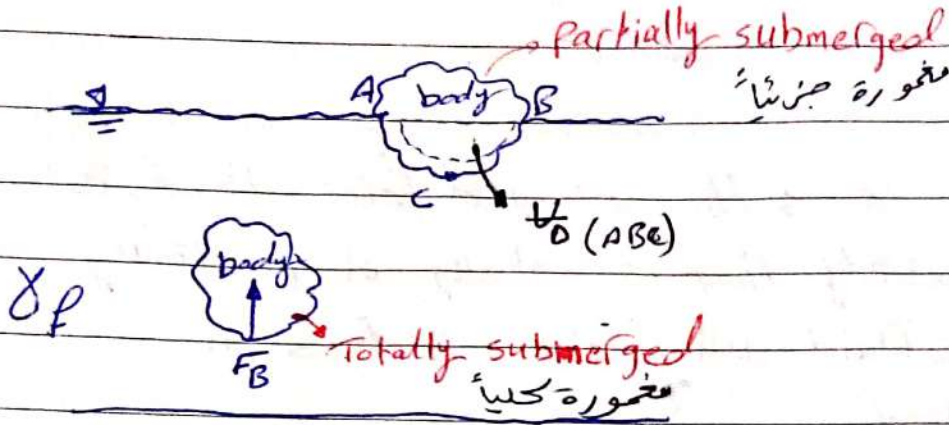 partially submerged
مغمورة جزئياً
A body B
C
V̶D (ABC)
body
γf
FB
Totally submerged
مغمورة كلياً